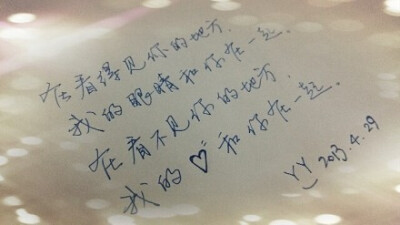 在看得见你的地方.
我的眼睛和你在一起.
在看不见你的地方.
我的♡和你在一起.
YY 2013.4.29